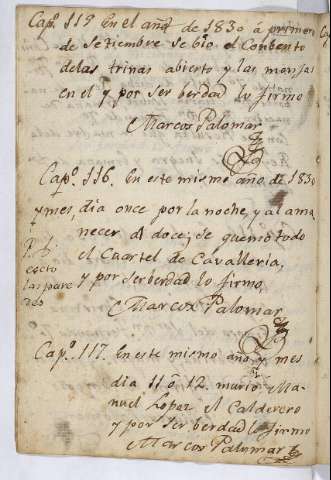 Capº. 115 En el año de 1830 á primero
de Setiembre se bio el Conbento
de las trinas abierto y las monjas
en el y por ser berdad lo firmo
Marcos Palomar
Capº. 116. En este mismo año de 1830
y mes, dia once por la noche, y al ama
necer al doce; se quemo todo
el Cuartel de Cavalleria,
y por ser berdad lo firmo
Marcos Palomar
eceto
las pare
des
Capº. 117. En este mismo año y mes
dia 11 ó 12. murio Ma-
nuel Lopez el Calderero
y por ser berdad lo firmo
Marcos Palomar